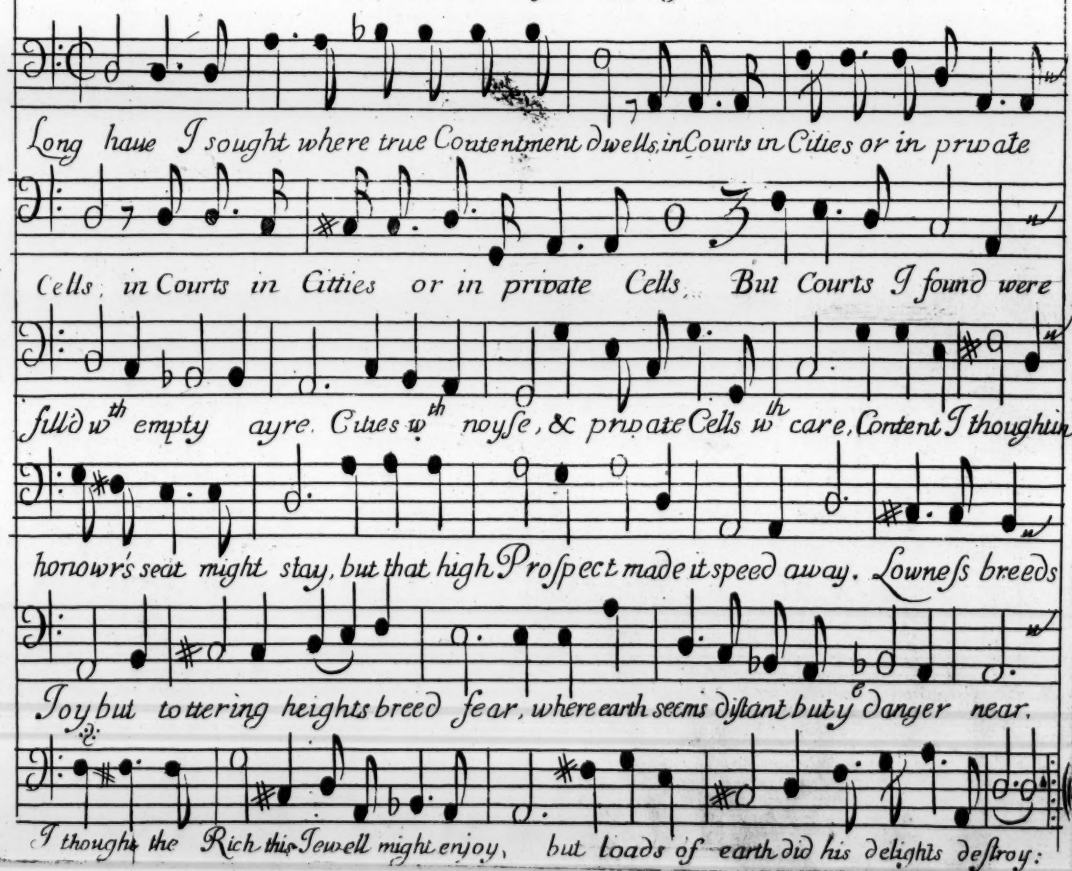 Long haue I sought where true Contentment dwells, in Courts in Cities or in private
Cells; in Courts in Citties or in private Cells, But Courts I found were
fill'd wth empty ayre. Cities wth noyſe, & private Cells wth care, Content I thought in
honowr's seat might stay, but that high Proſpect made it speed away. Lowneſs breeds
Joy but tottering heights breed fear, where earth seems diſtant but ye danger near.
I thought the Rich this Jewell might enjoy, but loads of earth did his delights deſtroy: